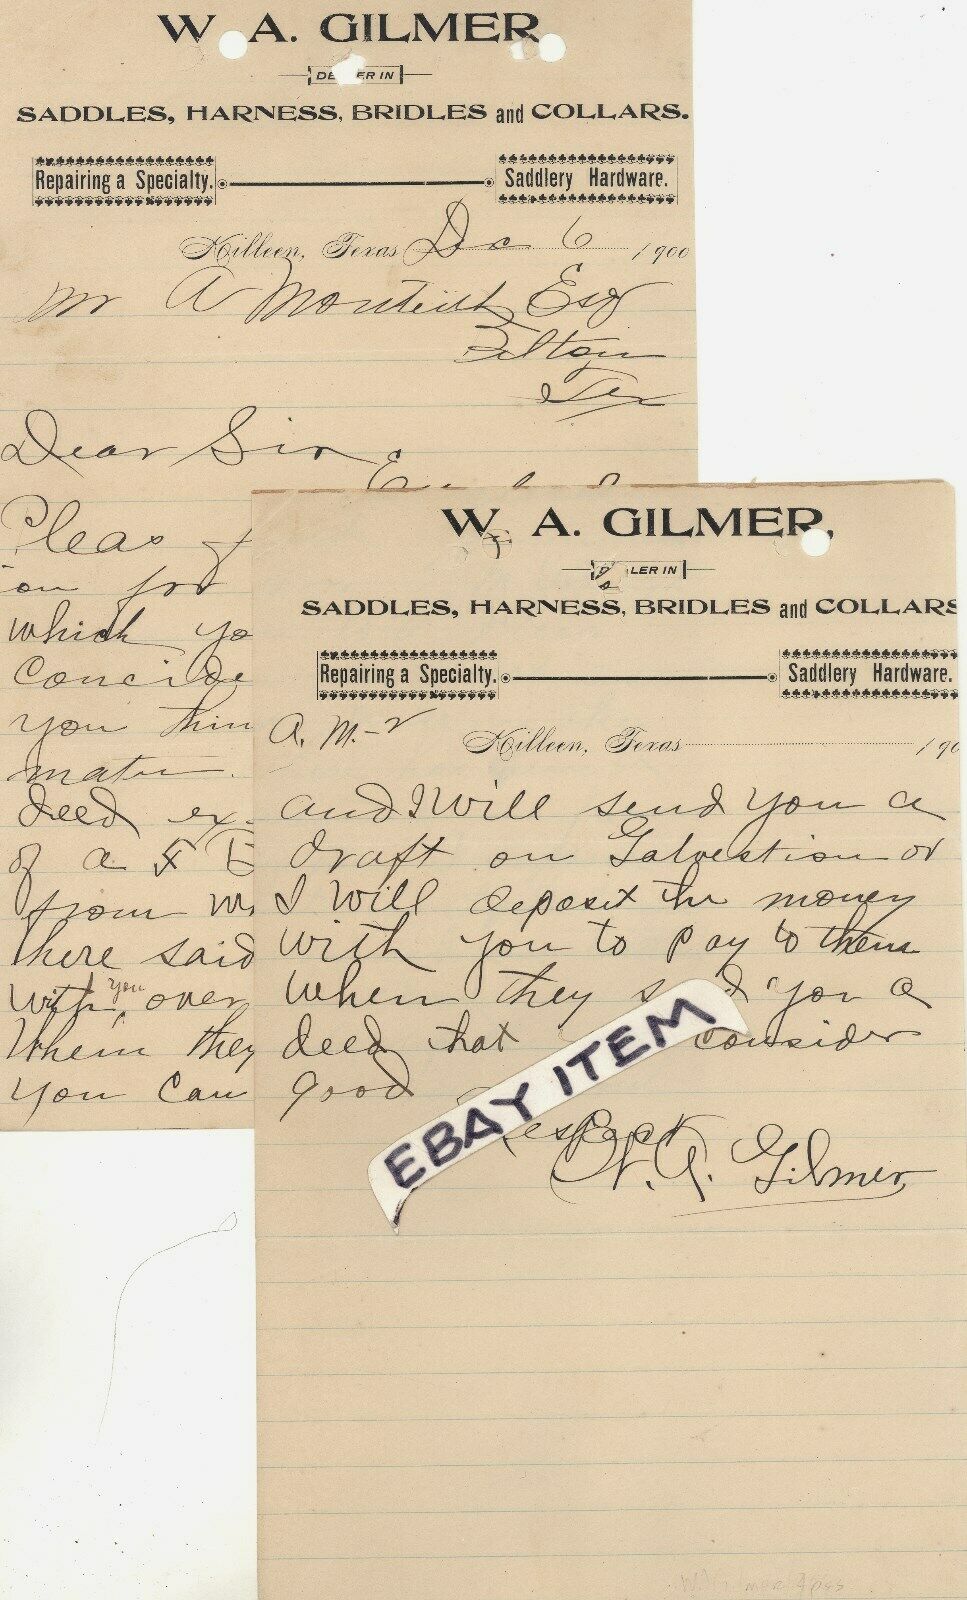 W. A. GILMER,
DEALER IN
SADDLES, HARNESS, BRIDLES and COLLARS.
Repairing a Specialty.
Saddlery Hardware.
Killeen, Texas Dec 6 1900
Mr A Monteith Esq
Belton
Tex
Dear Sir
Pleas
ion for
which yo
Concide
you thin
matter.
deed ex
of a
from
there said
with you over
When they
you Can
W. A. GILMER,
LER IN
SADDLES, HARNESS, BRIDLES and COLLARS
Repairing a Specialty.
Saddlery Hardware.
A. M.-2
Killeen, Texas 190
and I Will send you a
draft on Galvestion or
I Will deposit the money
With you to pay to them
When they you a
deed that consider
good
EBAY ITEM
Respect
W. A. Gilmer